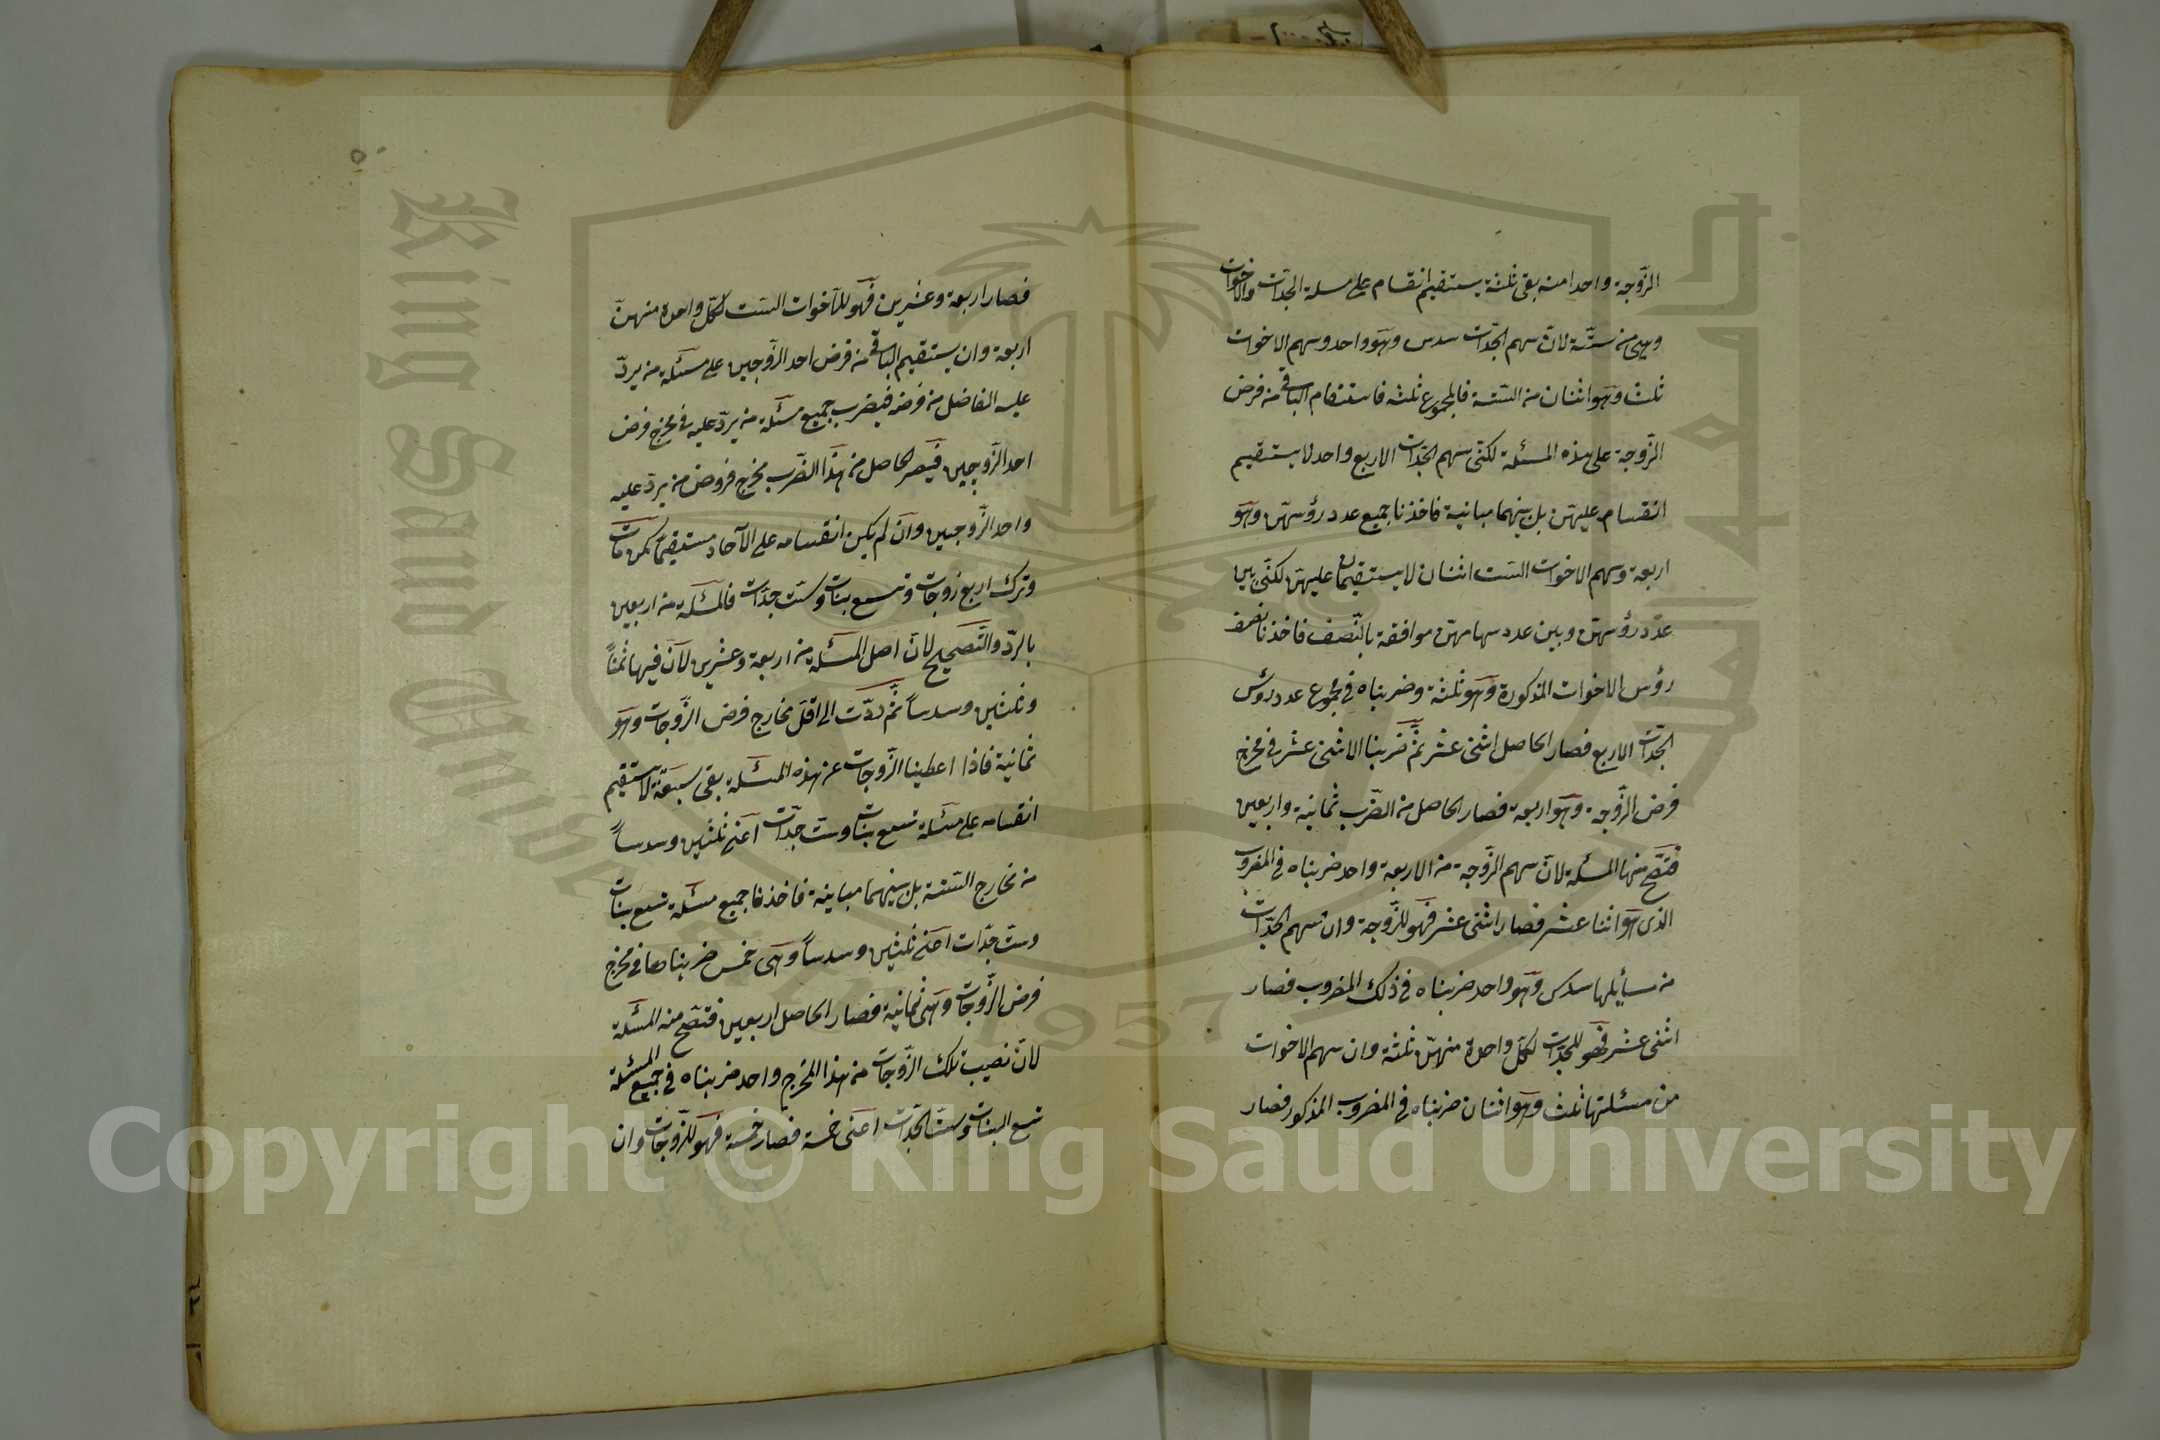 الزّوجة واحدا منه بقى ثلثة يستقيم انقسام على مسلة الجدّات والاخوات
وهى من ستّة لانّ سهم الجدّات سدس وهو واحد وسهم الاخوات
ثلث وهو اثنان من الستّة فالمجموع ثلثه فاستقام الباقى من فرض
الزّوجة على هذه المسئلة لكن سهم الجدّات الاربع واحد لا يستقيم
انقسام عليهنّ بل بينهما مباينة فاخذنا جميع عدد رؤسهنّ وهو
اربعة وسهم الاخوات الستّ اثنان لا يستقيمان عليهنّ لكن بين
عدد رؤسهنّ وبين عدد سهامهنّ موافقة بالنّصف فاخذنا نصف
رؤس الاخوات المذكورة وهو ثلثة وضربناه فى مجموع عدد رؤس
الجدّات الاربع فصار الحاصل اثنى عشر ثمّ ضربنا الاثنى عشر فى مخرج
فرض الزّوجة وهو اربعة فصار الحاصل من الضّرب ثمانية واربعين
فتصّح منها المسئلة لانّ سهم الزّوجة من الاربعة واحد ضربناه فى المضروب
الذى هو اثنا عشر فصار اثنى عشر فهو للزّوجة وان سهم الجدّات
من مسايلها سدس وهو واحد ضربناه فى ذلك المضروب فصار
اثنى عشر فهو للجدّات لكلّ واحدة منهنّ ثلثة وان سهم الاخوات
من مسئلتها ثلث وهو اثنان ضربناه فى المضروب المذكور فصار
فصار اربعة وعشرين فهو للاخوات الستّ لكلّ واحدة منهنّ
اربعة وان يستقيم الباقى من فرض احد الزّوجين على مسئلة من يردّ
عليه الفاضل من فرضه فيضرب جميع مسئلة من يردّ عليه فى مخرج فرض
احد الزّوجين فيصير الحاصل من هذا الضّرب مخرج فروض من يردّ عليه
واحد الزّوجين وان لم يكن انقسامه على الآحاد مستقيما كمن مات
وترك اربع زوجات وتسع بنات وستّ جدّات فالمسئلة من اربعين
بالردّ والتّصحيح لانّ اصل المسئلة من اربعة وعشرين لانّ فيها ثمناً
وثلثين وسدساً ثمّ ردّت الى اقلّ مخارج فرض الزّوجات وهو
ثمانية فاذا اعطينا الزّوجات عن هذه المسئلة بقى سبعة لا يستقيم
انقسامه على مسئلة تسع بنات وستّ جدّات اعنى ثلثين وسدساً
من مخارج الستّة بل بينهما مباينة فاخذنا جميع مسئلة تسع بنات
وستّ جدّات اعنى ثلثين وسدساً وهى خمس ضربناها فى مخرج
فرض الزّوجات وهى ثمانية فصار الحاصل اربعين فتصّح منه المسئلة
لانّ نصيب تلك الزّوجات من هذا المخرج واحد ضربناه فى جميع المسئلة
تسع البنات وستّ الجدّات اعنى خمسة فصار خمسة فهو للزّوجات وان
King Saud Univer
1957
Copyright © King Saud University